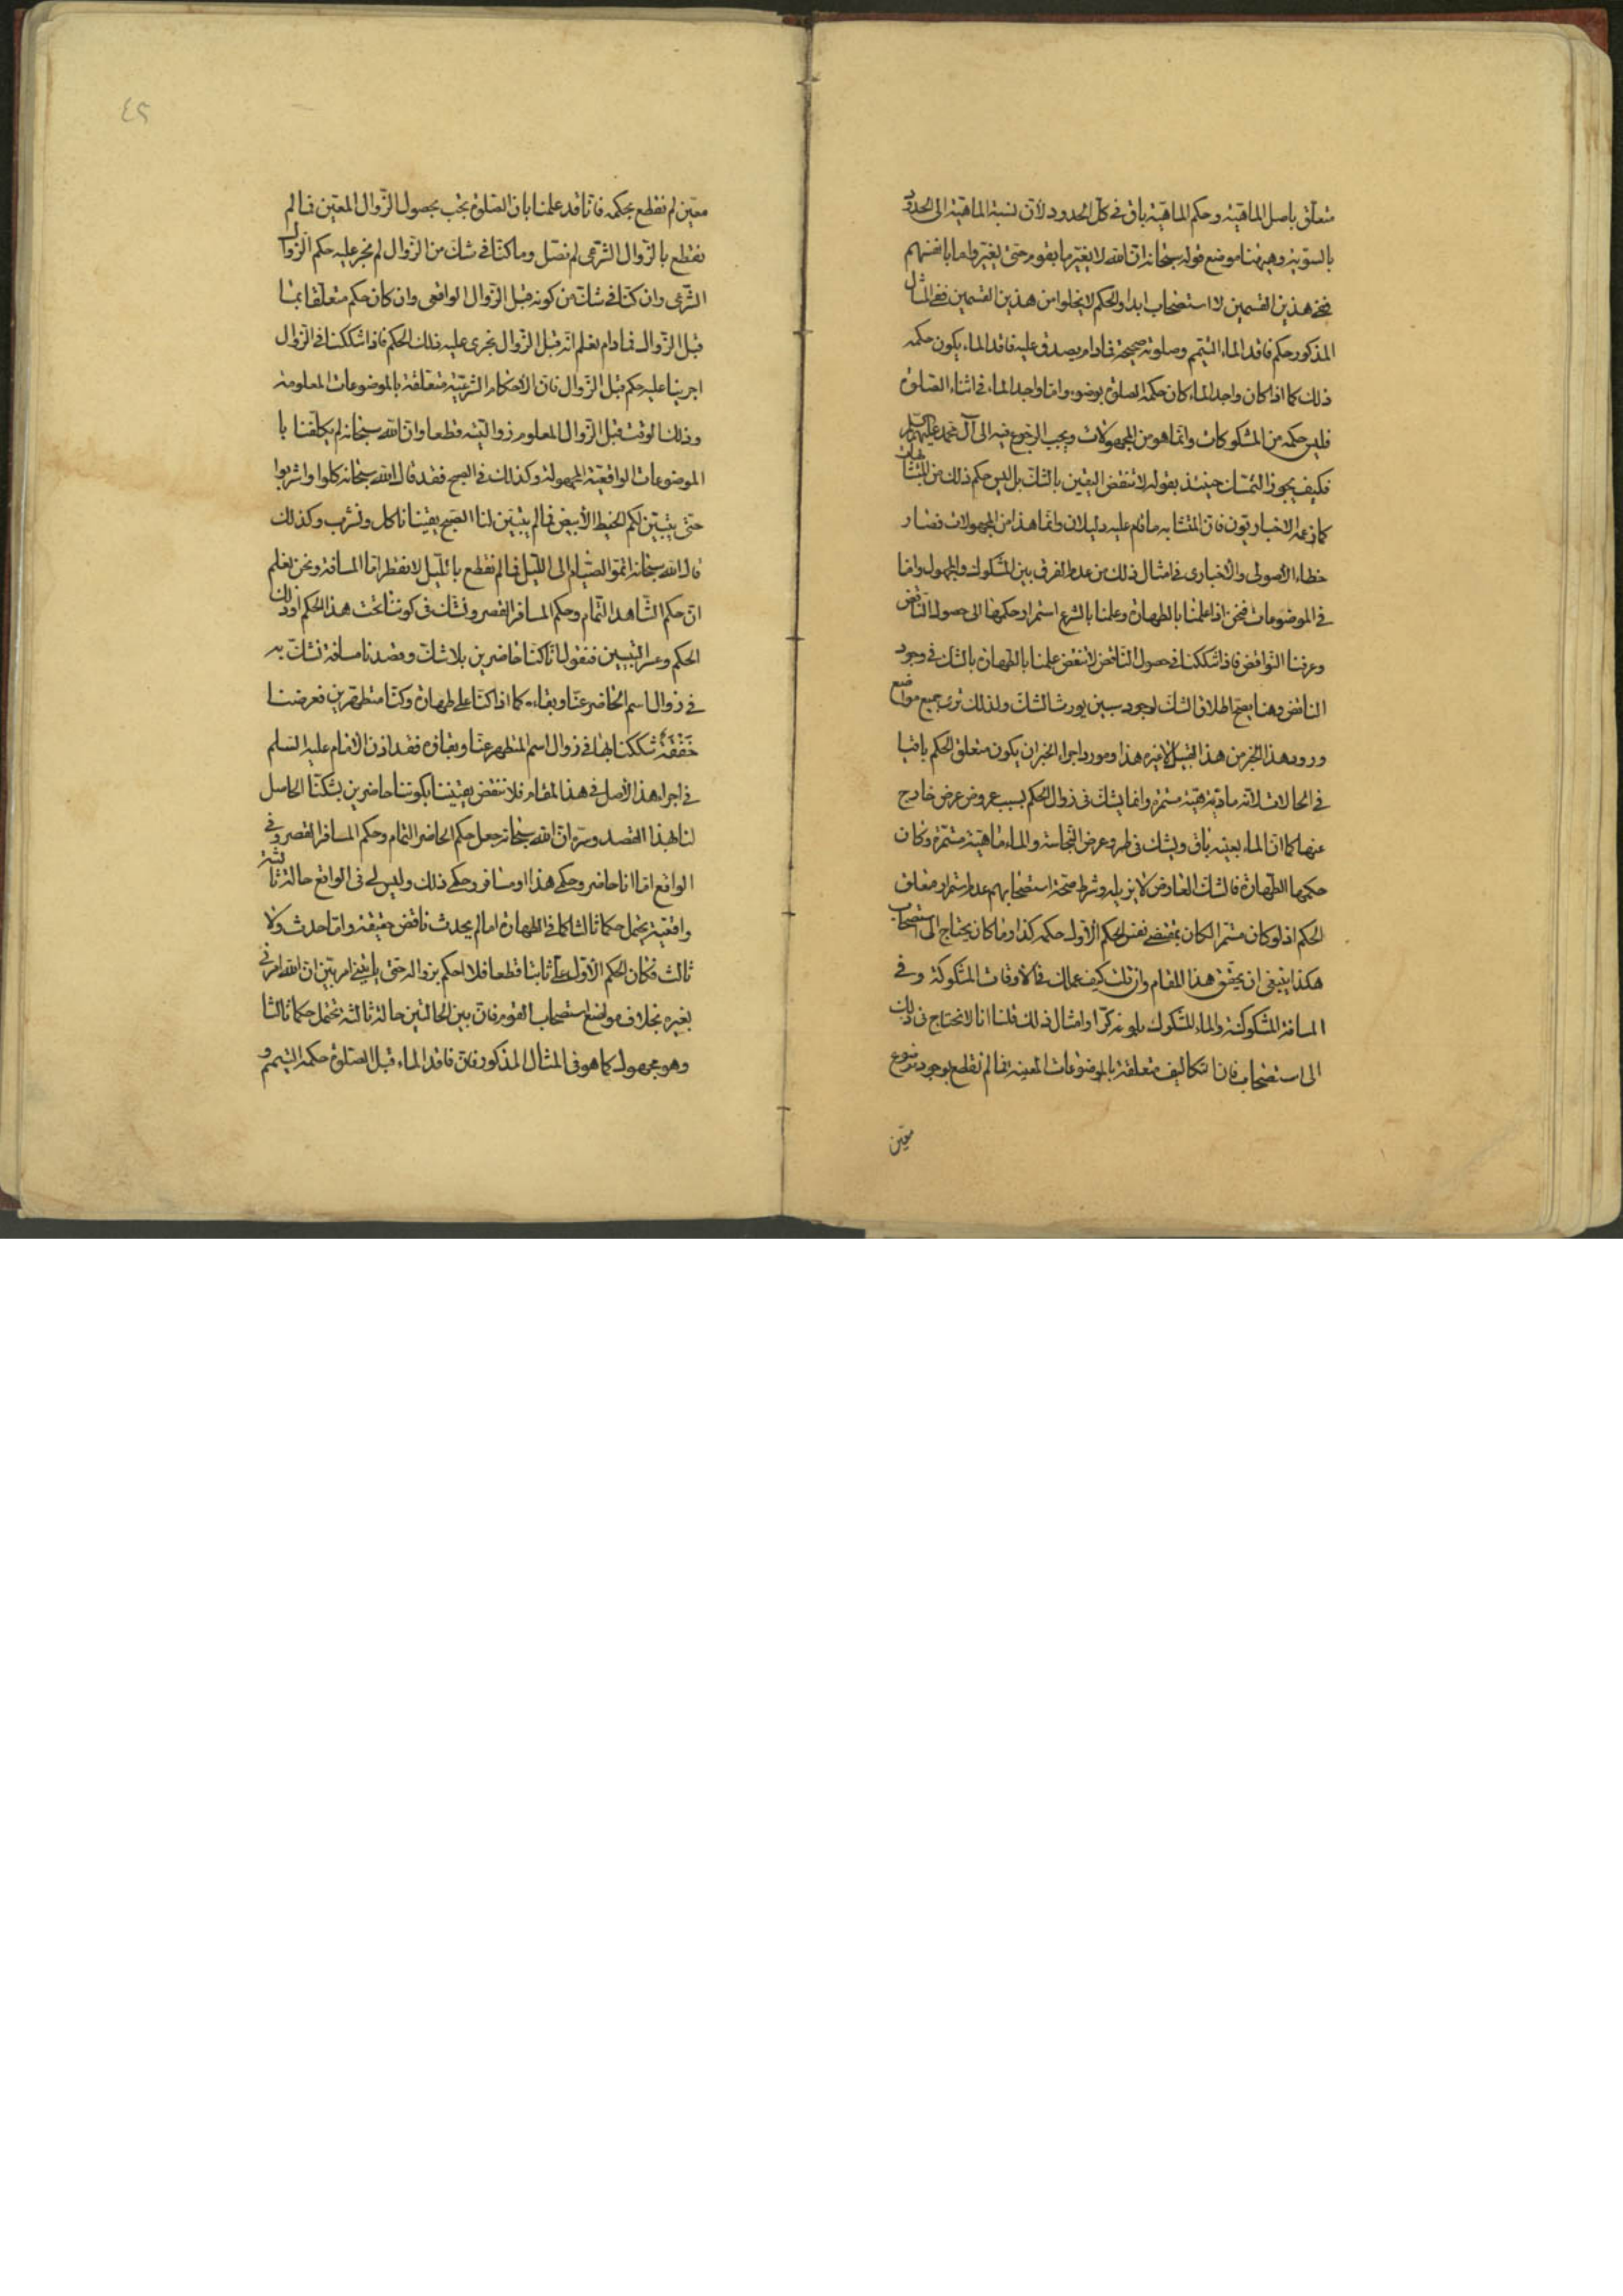 متعلّق باصل الماهيّة وحكم الماهيّة باق فى كلّ الحدود لانّ نسبة الماهيّة الى الحدود
بالسّويّة وهيهنا موضع قوله سبحانه انّ الله لا يغيّر ما بقوم حتى يغيّروا ما بانفسهم
ففى هذين القسمين لا استصحاب ابدا والحكم لا يخلوا من هذين القسمين ففى المثال
المذكور حكم فاقد الماء التيمّم وصلوته صحيحة فمادام يصدق عليه فاقد الماء يكون حكمه
ذلك كما اذا كان واجد الماء كان حكمه الصلوة بوضوء وامّا واجد الماء فى اثناء الصّلوة
فليس حكمه من المشكوكات وانّما هو من المجهولات ويجب الرّجوع فيه الى آل محمد عليهم السلام
فكيف يجوز التمسّك حينئذ بقوله لا تنقض اليقين بالشّك بل ليس حكم ذلك من المتشابهات
كما زعمه الاخباريّون فانّ المتشابه ما قام عليه دليلان وانّما هذا من المجهولات فصار
خطاء الاصولى والاخبارى فى امثال ذلك من عدم الفرق بين المشكوك والمجهول وامّا
فى الموضوعات فنحن اذا علمنا بالطهارة وعلمنا بالشرع استمرار حكمها الى حصول النّاقض
وعرفنا النّواقض فاذا شككنا فى حصول النّاقض لا ننقض علمنا بالطهارة بالشك فى وجود
النّاقض وهنا يصحّ اطلاق الشكّ لوجود سببين يورث الشكّ ولذلك ترى جميع مواضع
ورود هذا الخبر من هذا القبيل لا غيره هذا ومورد اجراء الخبر ان يكون متعلّق الحكم باقيا
فى الحالات لانّه ماهيّة مستمرّة وانّما يشكّ فى زوال الحكم بسبب عروض عرض خارج
عنها كما انّ الماء بعينه باق ويشكّ فى طروّ عرض النّجاسة والماء ماهيّة مستمرّة وكان
حكمها الطّهارة فالشكّ العارض لا يزيله وشرط صحّة استصحابهم عدم استمرار متعلّق
الحكم اذ لو كان مستمرّا لكان بمقتضى نفس الحكم الاوّل حكمه كذا وما كان يحتاج الى استصحاب
هكذا ينبغى ان يحقّق هذا المقام وان قلت كيف عملك فى الاوقات المشكوكة وفى
المسافة المشكوكة والماء المشكوك بلوغه كرّا وامثال ذلك قلنا انا لا نحتاج فى ذلك
الى استصحاب فانّ التكاليف متعلّقة بالموضوعات المعيّنة فما لم نقطع بوجود موضوع
معيّن
٤٢
معيّن لم نقطع بحكمه فانّا قد علمنا بانّ الصّلوة يجب بحصول الزّوال المعيّن فما لم
نقطع بالزّوال الشّرعى لم نصلّ وما كنّا فى شكّ من الزّوال لم نجر عليه حكم الزّوال
الشّرعى وان كنّا فى شكّ من كونه قبل الزّوال الواقعى وان كان حكم متعلّقا بما
قبل الزّوال فمادام نعلم انّه قبل الزّوال نجرى عليه ذلك الحكم فاذا شككنا فى الزّوال
اجرينا عليه حكم قبل الزّوال فانّ الاحكام الشّرعيّة متعلّقة بالموضوعات المعلومة
وذلك الوقت قبل الزّوال المعلوم زواليّته قطعا وانّ الله سبحانه لم يكلّفنا با
الموضوعات الواقعيّة المجهولة وكذلك فى الصبح فقد قال الله سبحانه كلوا واشربوا
حتى يتبيّن لكم الخيط الابيض فما لم يتبيّن لنا الصّبح يقينا ناكل ونشرب وكذلك
قال الله سبحانه اتمّوا الصّيام الى اللّيل فما لم نقطع باللّيل لا نفطر امّا المسافة ونحن نعلم
انّ حكم الشّاهد التّمام وحكم المسافر القصر ونشكّ فى كوننا تحت هذا الحكم او ذلك
الحكم وعسر التبيين فنقول انّا كنّا حاضرين بلا شكّ وقصدنا مسافة نشكّ به
فى زوال اسم الحاضر عنّا وبقاءه كما اذا كنّا على طهارة وكنّا متطهّرين فعرضنا
خفقة شككنا بها فى زوال اسم المتطهر عنّا وبقاءه فقد اذن الامام عليه السّلم
فى اجراء هذا الاصل فى هذا المقام فلا ننقض يقيننا بكوننا حاضرين بشكّنا الحاصل
لنا بهذا القصد وسرّه انّ الله سبحانه جعل حكم الحاضر التمام وحكم المسافر القصر وفى
الواقع امّا انا حاضر وحكمى هذا او مسافر وحكمى ذلك وليس لى فى الواقع حالة ثالثة
واقعيّة يحتمل حكما ثالثا كما فى الطهارة اما لم يحدث ناقض حقيقة وامّا حدث ولا
ثالث فكان الحكم الاوّل علىّ ثابتا قطعا فلا احكم بزواله حتى ياتينى امر بيّن انّ الله امرنى
بغيره بخلاف مواضع استصحاب القوم فانّ بين الحالتين حالة ثالثة تحتمل حكما ثالثا
وهو مجهول كما هو فى المثال المذكور فانّ فاقد الماء قبل الصّلوة حكمه التيمم و